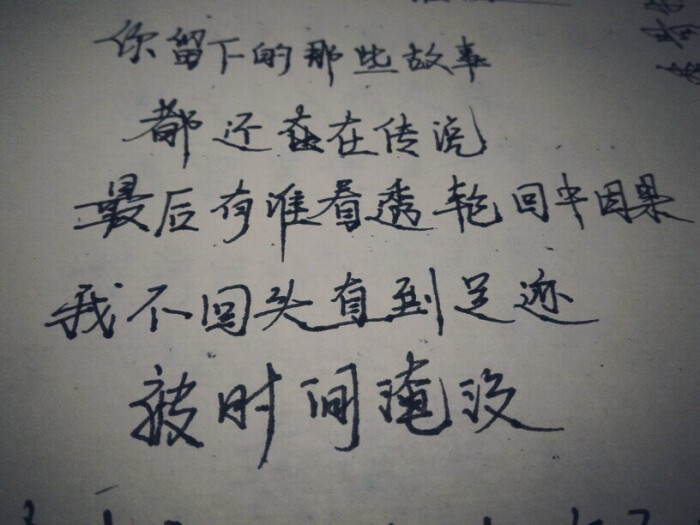 你留下的那些故事
都还在传说
最后有谁看透轮回中因果
我不回头直到足迹
被时间淹没